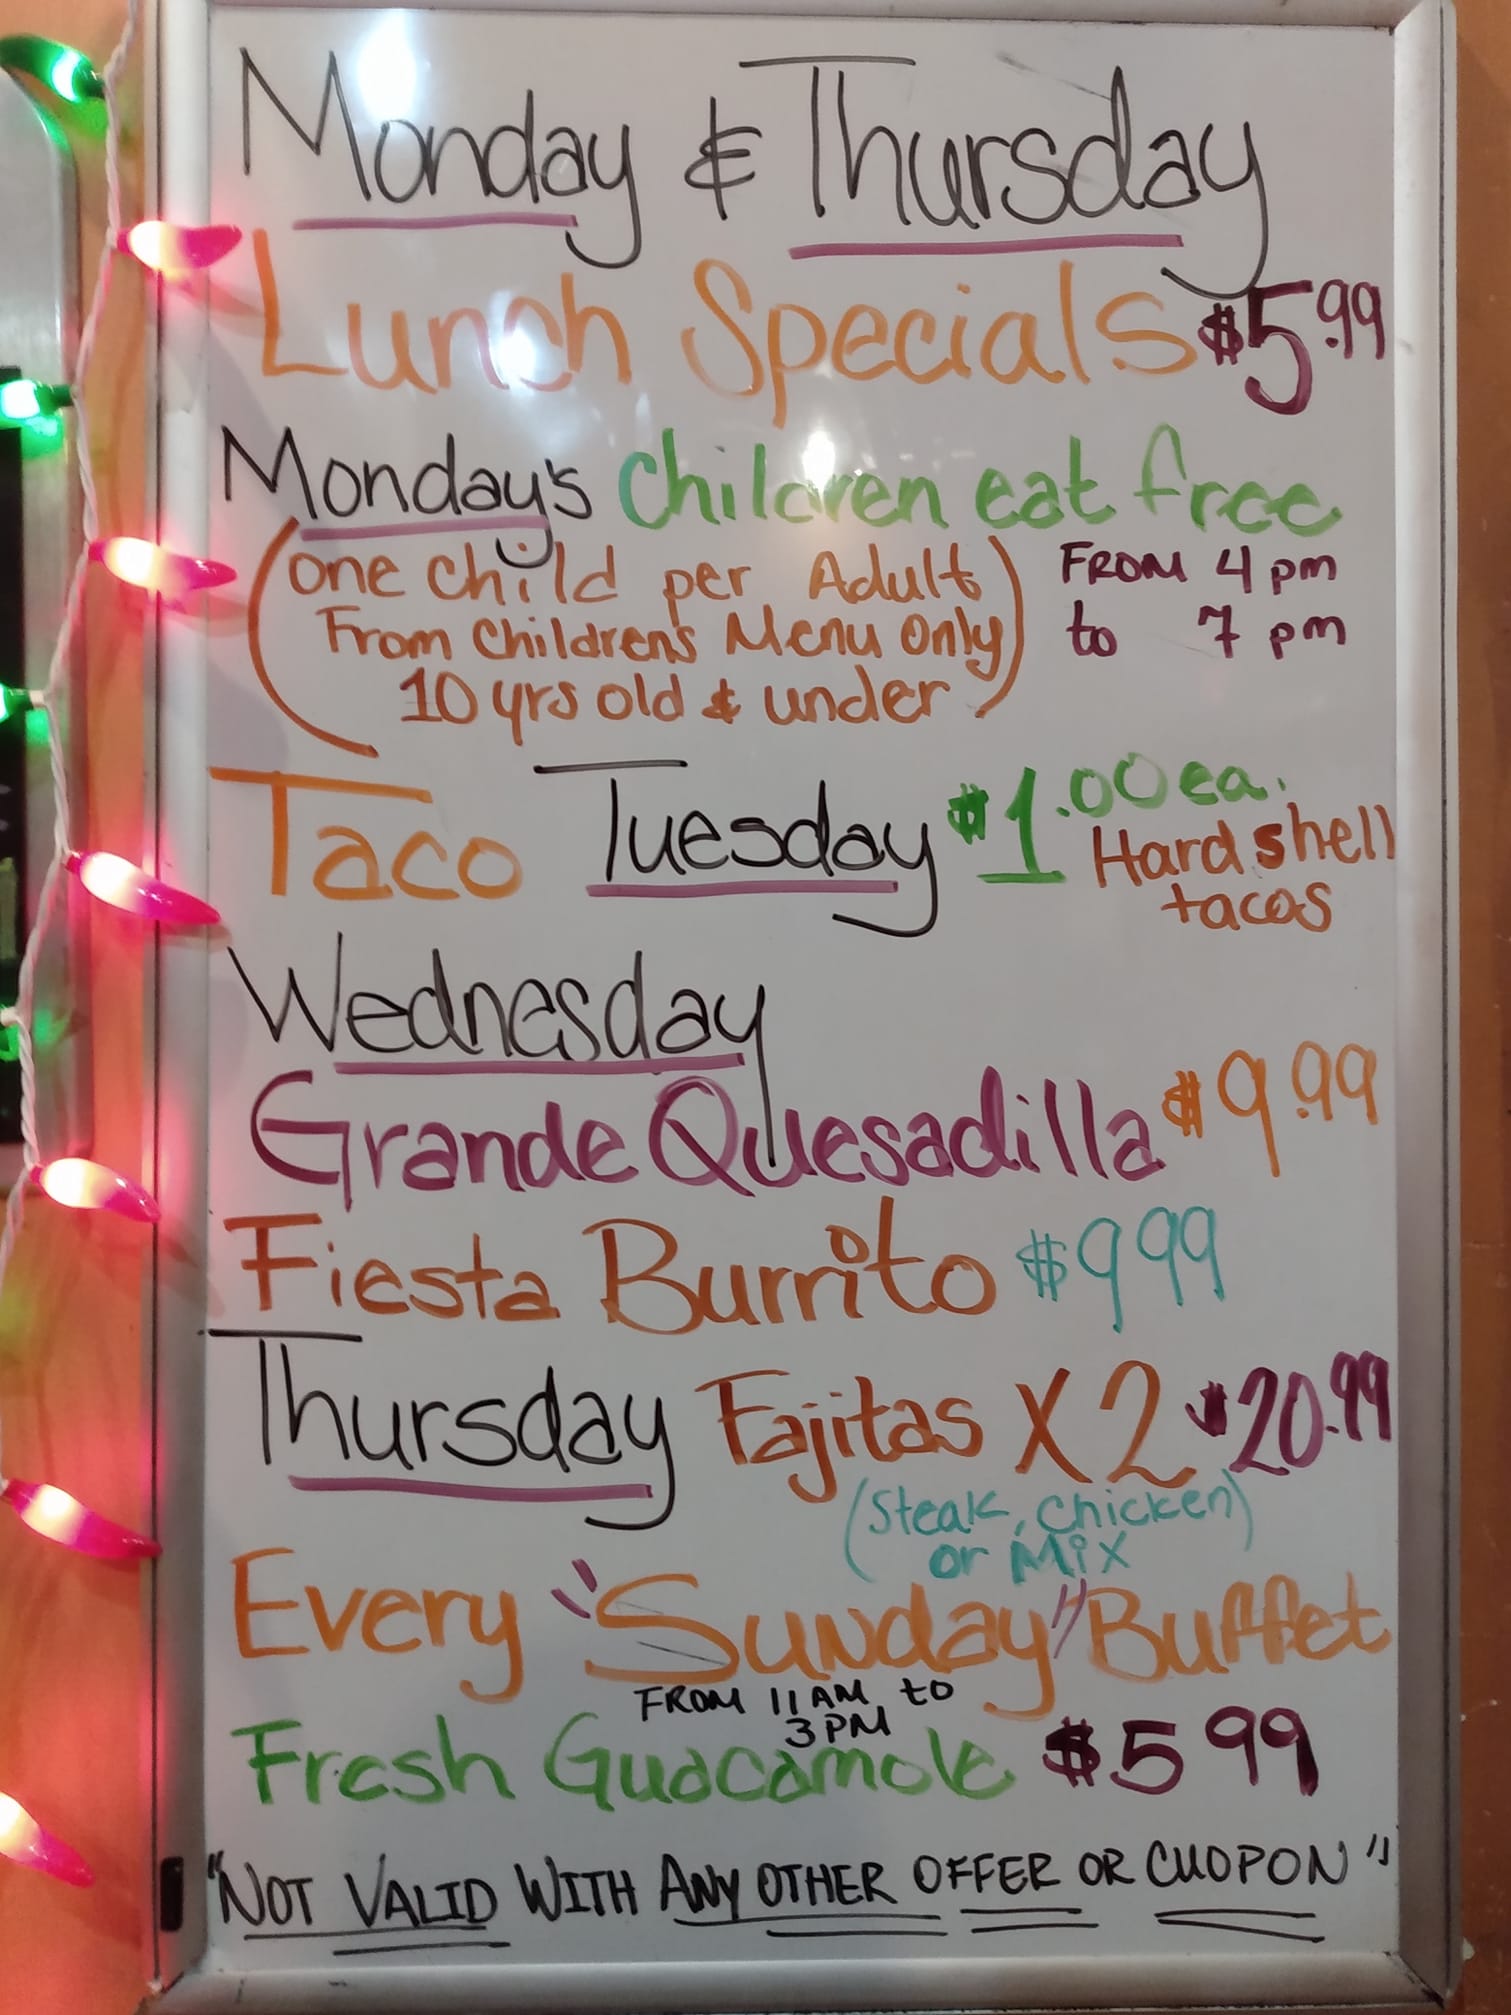 Monday & Thursday
Lunch Specials $5.99
Monday's Children eat free
(one child per Adult
From Childrens Menu Only
10 yrs old & under)
FROM 4 pm
to 7 pm
Taco Tuesday $1.00 ea.
Hard shell
tacos
Wednesday
Grande Quesadilla $9.99
Fiesta Burrito $9 99
Thursday Fajitas X 2 $20.99
(Steak, Chicken)
or Mix
Every "Sunday" Buffet
FROM 11 AM to
3 PM
Fresh Guacamole $5 99
"NOT VALID WITH ANY OTHER OFFER OR CUOPON"